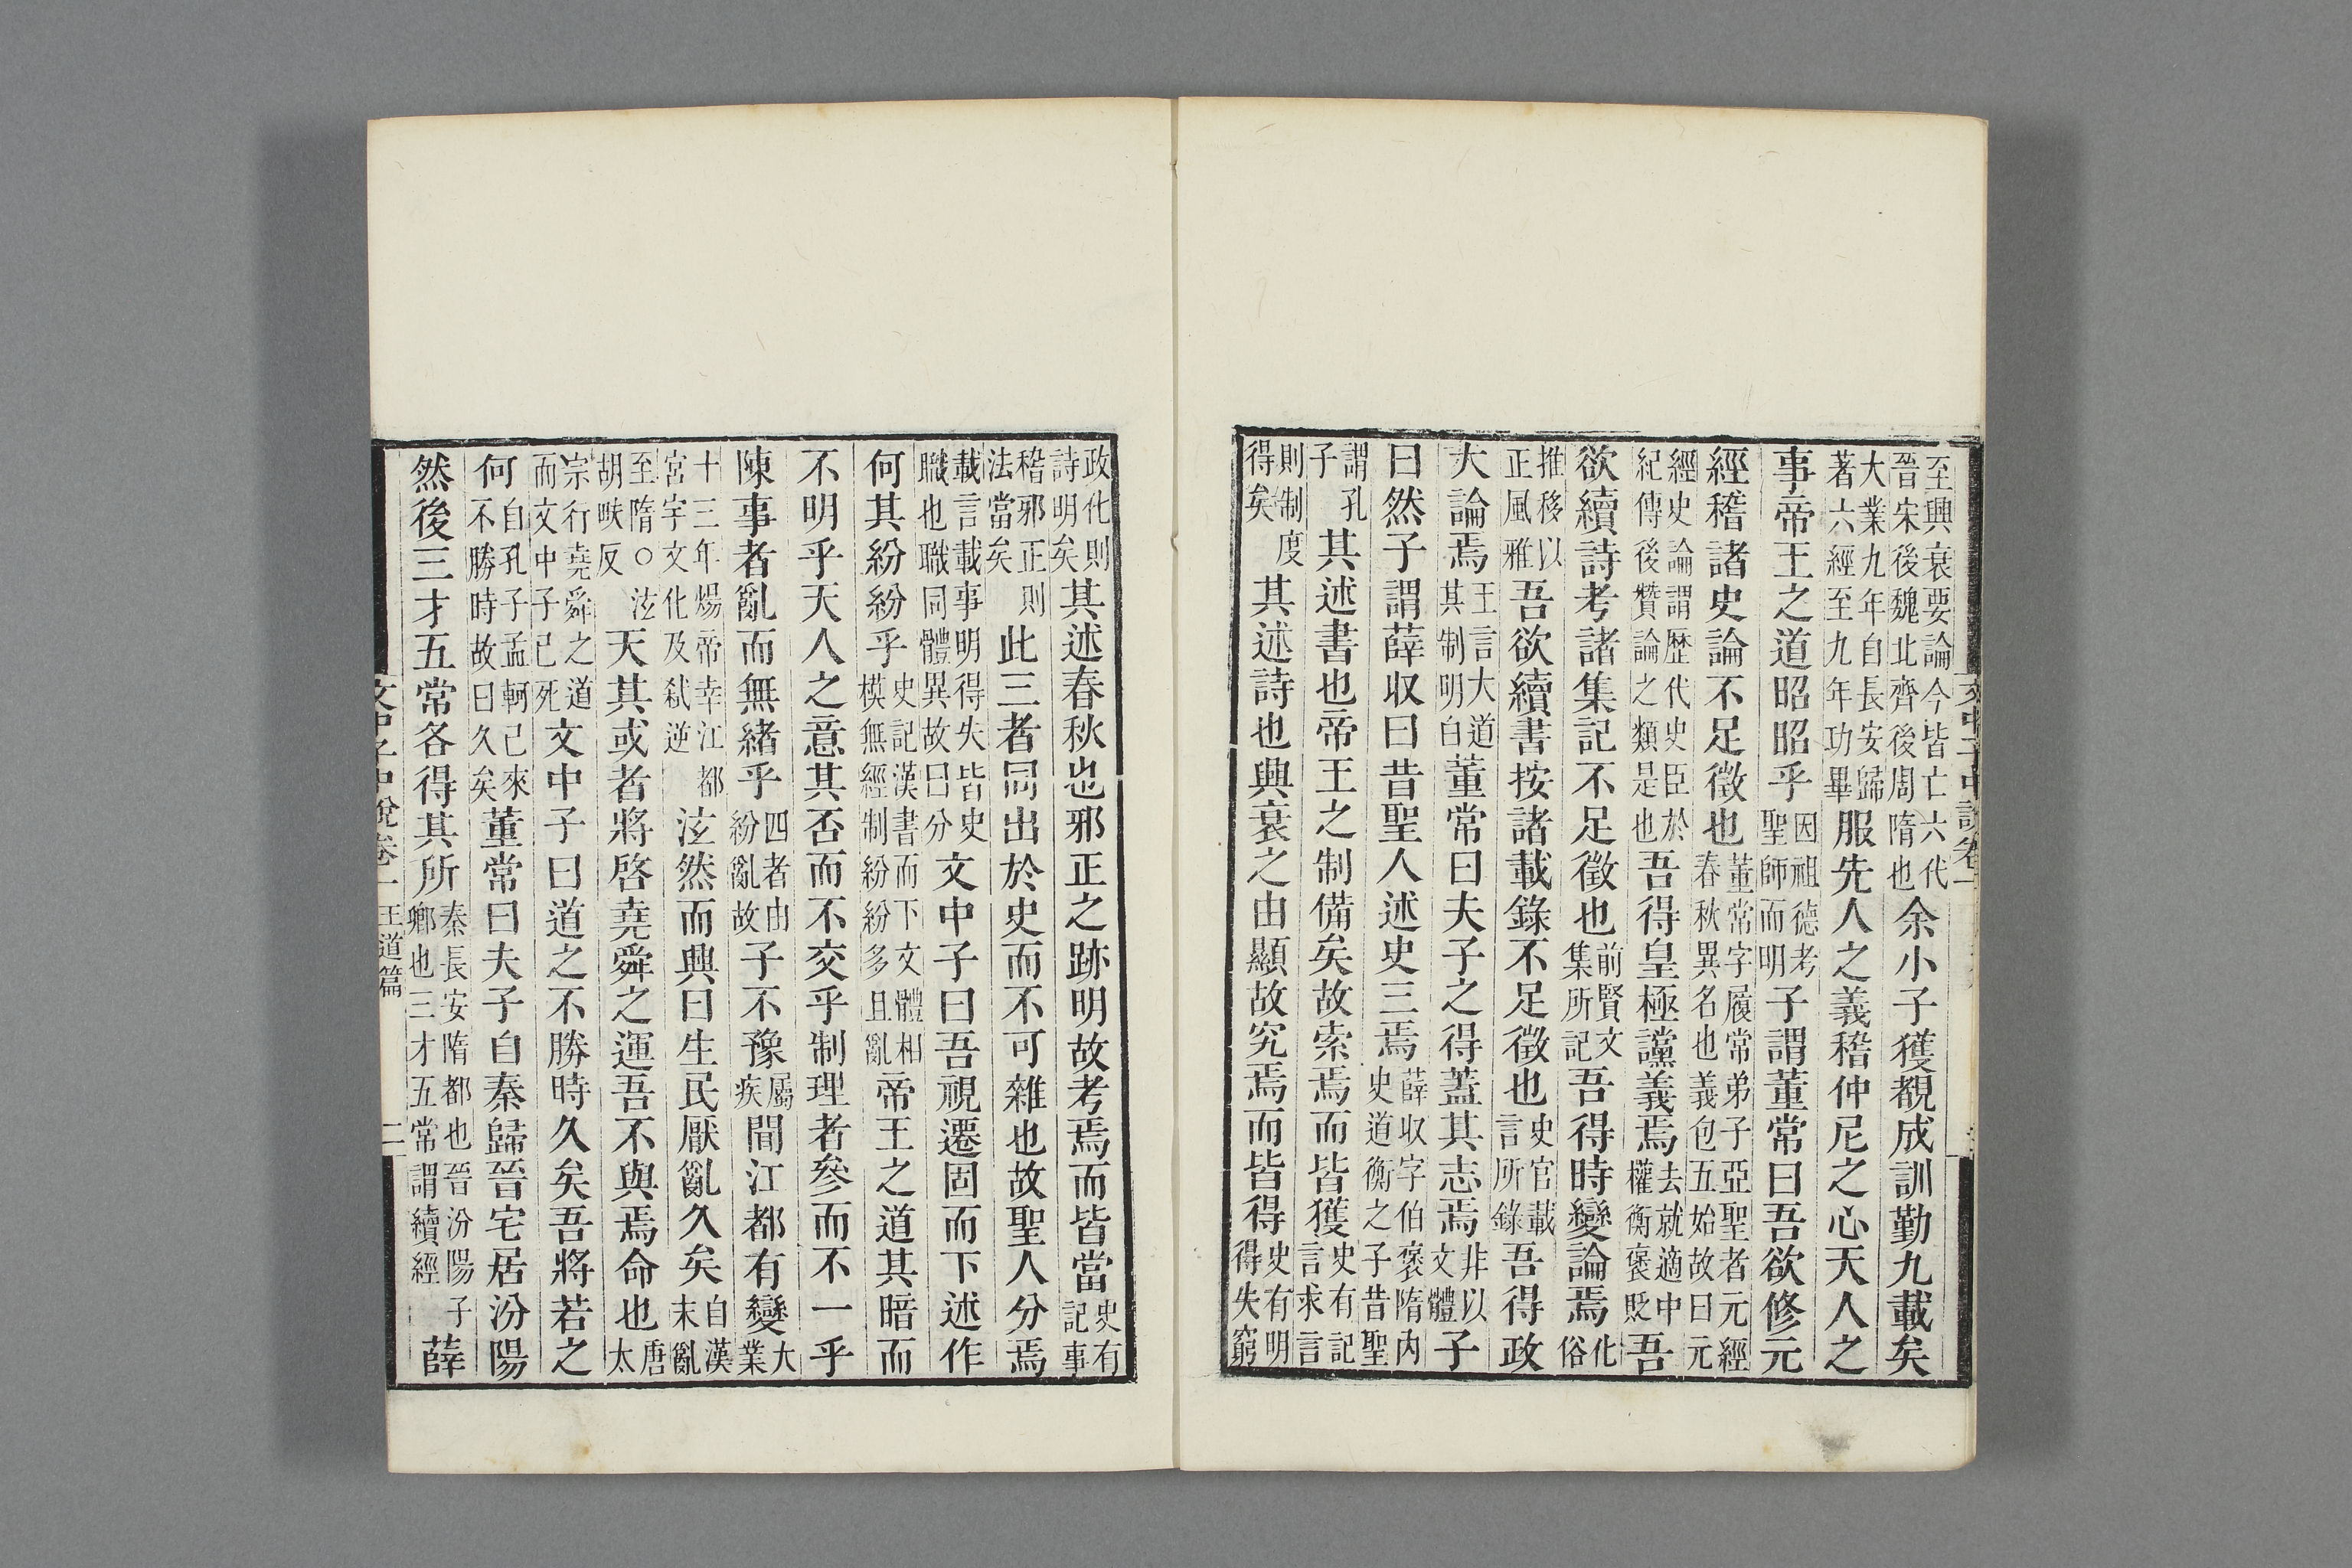 至興衰要論今皆亡六代晉宋後魏北齊後周隋也余小子獲覩成訓勤九載矣
大業九年自長安歸著六經至九年功畢服先人之義稽仲尼之心天人之
事帝王之道昭昭乎因祖德考聖師而明子謂董常曰吾欲修元
經稽諸史論不足徵也董常字履常弟子亞聖者元經春秋異名也義包五始故曰元
經史論謂歴代史臣於紀傳後贊論之類是也吾得皇極讜義焉去就適中權衡褒貶吾
欲續詩考諸集記不足徵也前賢文集所記吾得時變論焉化俗
推移以正風雅吾欲續書按諸載錄不足徵也史官載言所錄吾得政
大論焉王言大道其制明白董常曰夫子之得蓋其志焉非以文體子
曰然子謂薛收曰昔聖人述史三焉薛收字伯褒隋內史道衡之子昔聖
謂孔子其述書也帝王之制備矣故索焉而皆獲史有記言求言
則制度得矣其述詩也興衰之由顯故究焉而皆得史有明得失窮
政化則詩明矣其述春秋也邪正之跡明故考焉而皆當史有記事
稽邪正則法當矣此三者同出於史而不可雜也故聖人分焉
載言載事明得失皆史職也職同體異故曰分文中子曰吾視遷固而下述作
何其紛紛乎史記漢書而下文體相模無經制紛紛多且亂帝王之道其暗而
不明乎天人之意其否而不交乎制理者參而不一乎
陳事者亂而無緒乎四者由紛亂故子不豫屬疾聞江都有變大業
十三年煬帝幸江都宮宇文化及弒逆泫然而興曰生民厭亂久矣自漢末亂
至隋○泫胡畎反天其或者將啓堯舜之運吾不與焉命也唐太
宗行堯舜之道而文中子已死文中子曰道之不勝時久矣吾將若之
何自孔子孟軻已來不勝時故曰久矣董常曰夫子自秦歸晉宅居汾陽
然後三才五常各得其所秦長安隋都也晉汾陽子鄉也三才五常謂續經薛
文中子中說卷一 王道篇 二